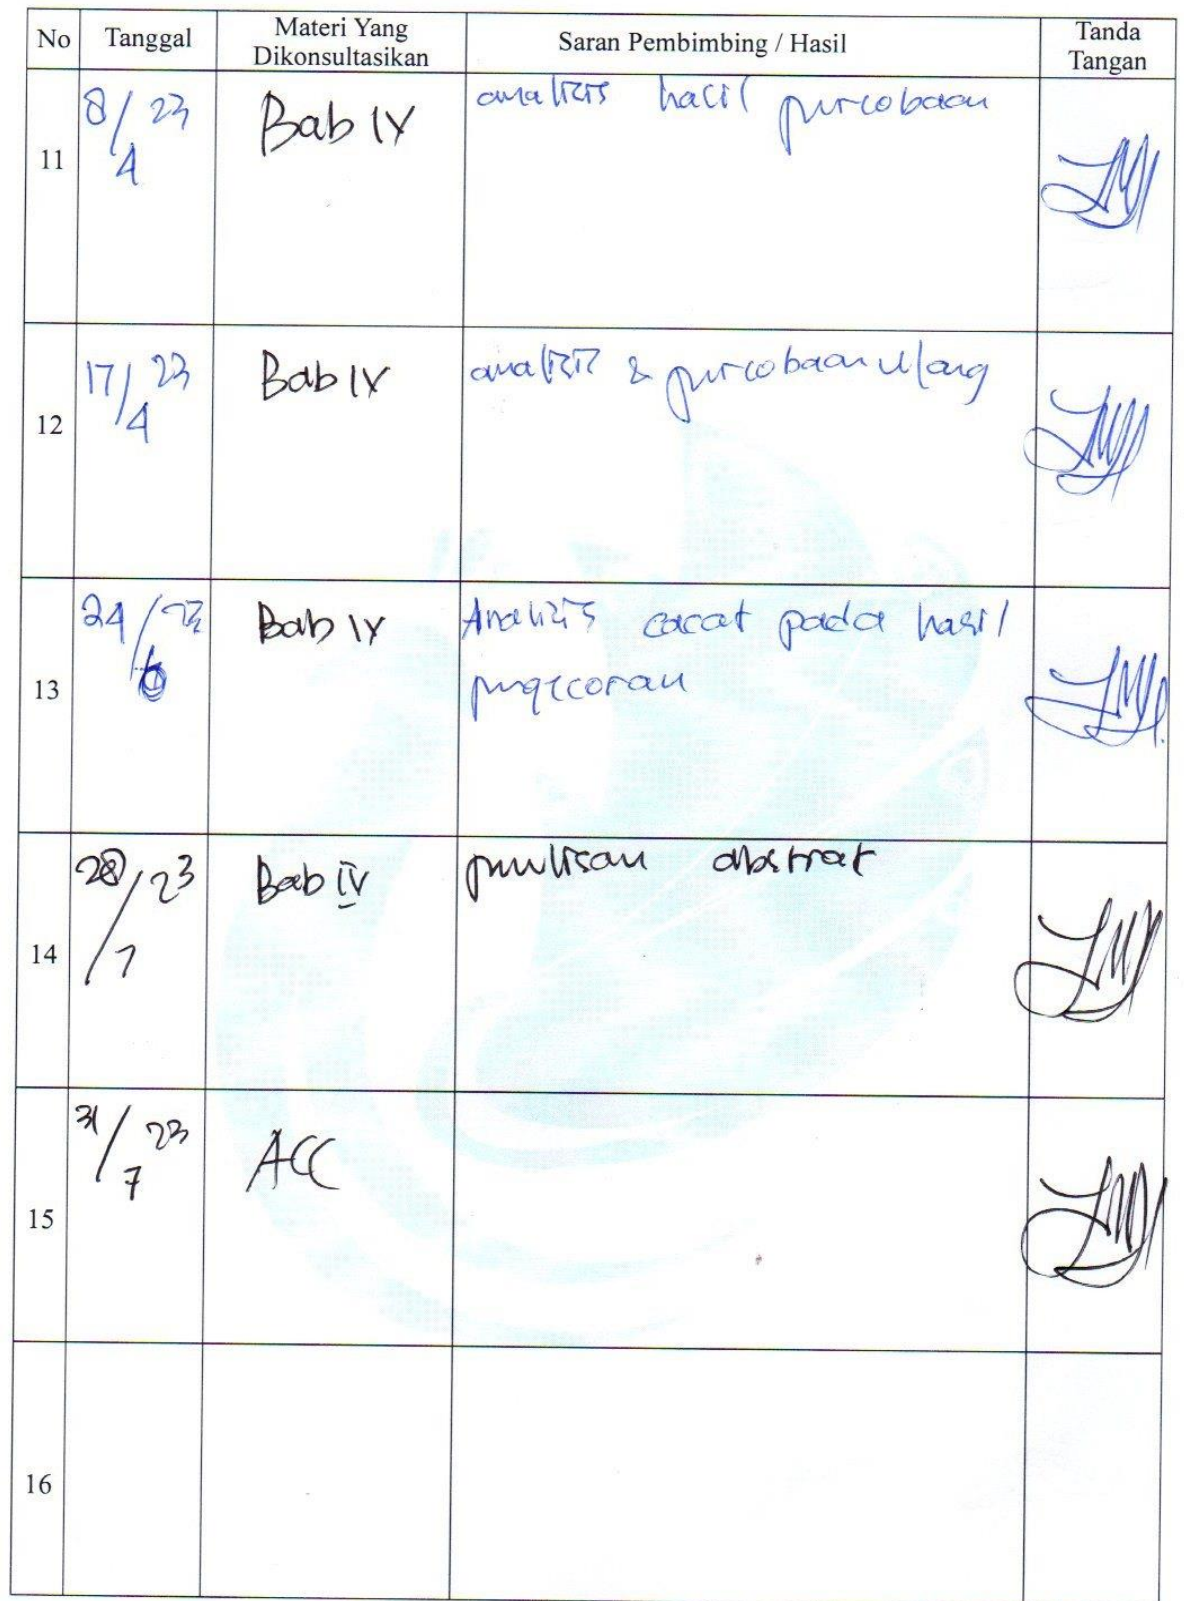 No Tanggal Materi Yang Dikonsultasikan Saran Pembimbing / Hasil Tanda Tangan
11 8/4 23 Bab IV analisis hasil percobaan
12 17/4 23 Bab IV analisis & percobaan ulang
13 24/6 23 Bab IV Analisis cacat pada hasil
pengecoran
14 28/7 23 Bab IV penulisan abstrak
15 31/7 23 ACC
16